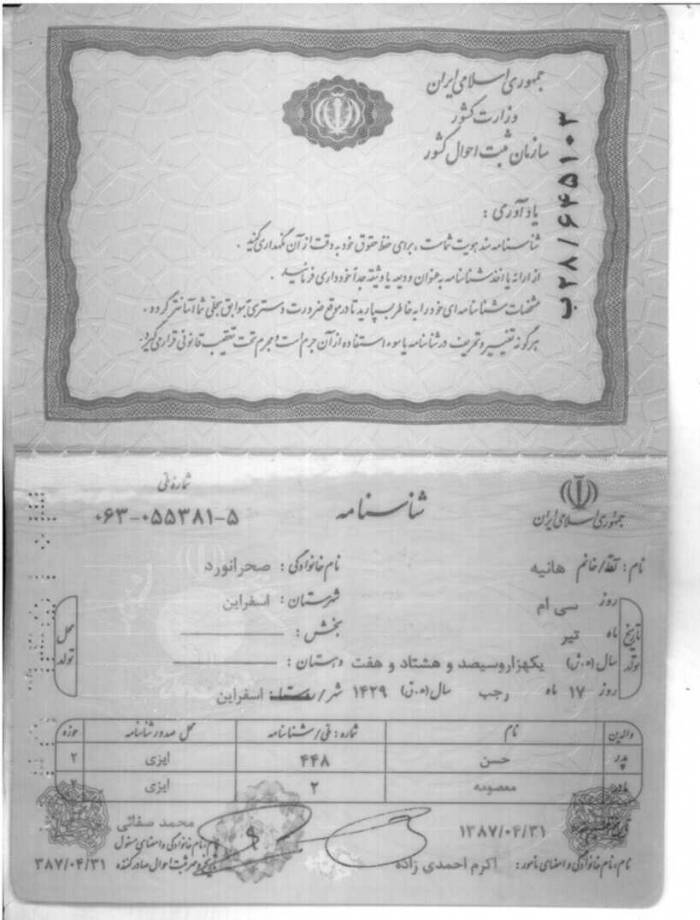 جمهوری اسلامی ایران
وزارت کشور
سازمان ثبت احوال کشور
ب۲۸/۶۴۵۱۰۳
یادآوری :
شناسنامه سند هویت شماست ، برای حفظ حقوق خود به دقت از آن نگهداری کنید .
از ارائه یا اخذ شناسنامه به عنوان ودیعه یا وثیقه جداً خودداری فرمائید .
مشخصات شناسنامه ای خود را به خاطر بسپارید تا در موقع ضرورت دسترسی به سوابق سجلی شما آسانتر گردد .
هرگونه تغییر و تحریف در شناسنامه یا سوء استفاده از آن جرم است و مجرم تحت تعقیب قانونی قرار می گیرد .
جمهوری اسلامی ایران
شناسنامه
شماره ملی
۰۶۳-۰۵۵۳۸۱-۵
نام : آقا/خانم هانیه
نام خانوادگی : صحرانورد
تاریخ تولد
روز سی ام
ماه تیر
سال (ه.ش) یکهزاروسیصد و هشتاد و هفت
روز ۱۷ ماه رجب سال (ه.ق) ۱۴۲۹
محل تولد
شهرستان : اسفراین
بخش :
دهستان :
شهر/روستا : اسفراین
والدین نام شماره : ملی/شناسنامه محل صدور شناسنامه حوزه
پدر حسن ۴۴۸ ایزی ۲
مادر معصومه ۲ ایزی
۱۳۸۷/۰۴/۳۱
محمد صفائی
نام ، نام خانوادگی و امضای مسئول
نام ، نام خانوادگی و امضای مأمور : اکرم احمدی زاده
و مهر ثبت احوال صادرکننده
۳۸۷/۰۴/۳۱